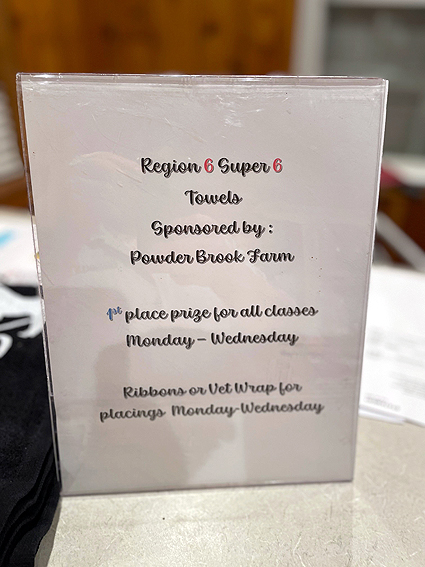 Region 6 Super 6
Towels
Sponsored by :
Powder Brook Farm
1st place prize for all classes
Monday – Wednesday
Ribbons or Vet Wrap for
placings Monday-Wednesday